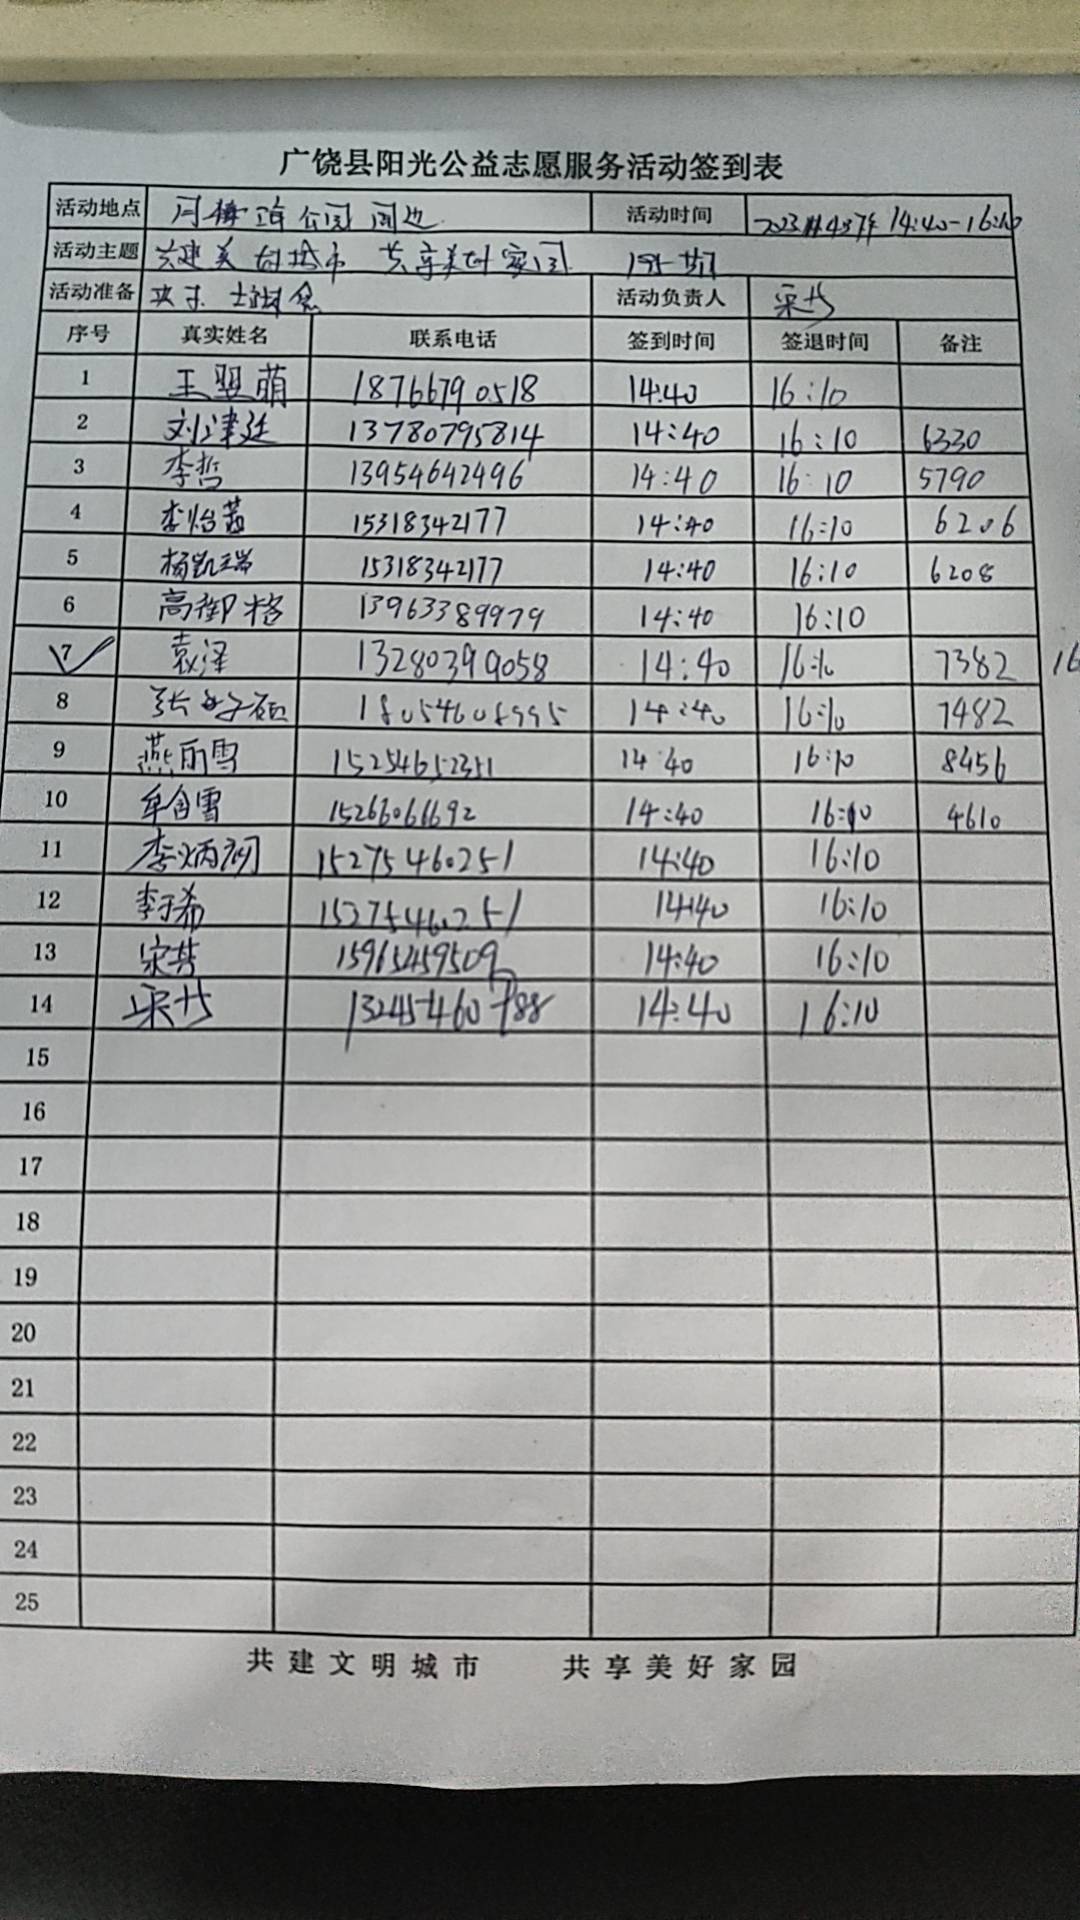 广饶县阳光公益志愿服务活动签到表
活动地点 公园周边 活动时间 14:40-16:10
活动主题 共建美好城市 共享美好家园
活动准备 活动负责人
序号 真实姓名 联系电话 签到时间 签退时间 备注
1 王翌萌 18766790518 14:40 16:10
2 刘津廷 13780795814 14:40 16:10 6330
3 李哲 13954642496 14:40 16:10 5790
4 李怡茜 15318342177 14:40 16:10 6206
5 杨凯瑞 15318342177 14:40 16:10 6208
6 高御格 13963389979 14:40 16:10
7 袁泽 13280399058 14:40 16:10 7382 16
8 14:40 16:10 7482
9 燕丽雪 15254652351 14:40 16:10 8456
10 14:40 16:10 4610
11 15275460251 14:40 16:10
12 李于希 15275460251 14:40 16:10
13 15965459509 14:40 16:10
14 13245460788 14:40 16:10
15
16
17
18
19
20
21
22
23
24
25
共建文明城市 共享美好家园